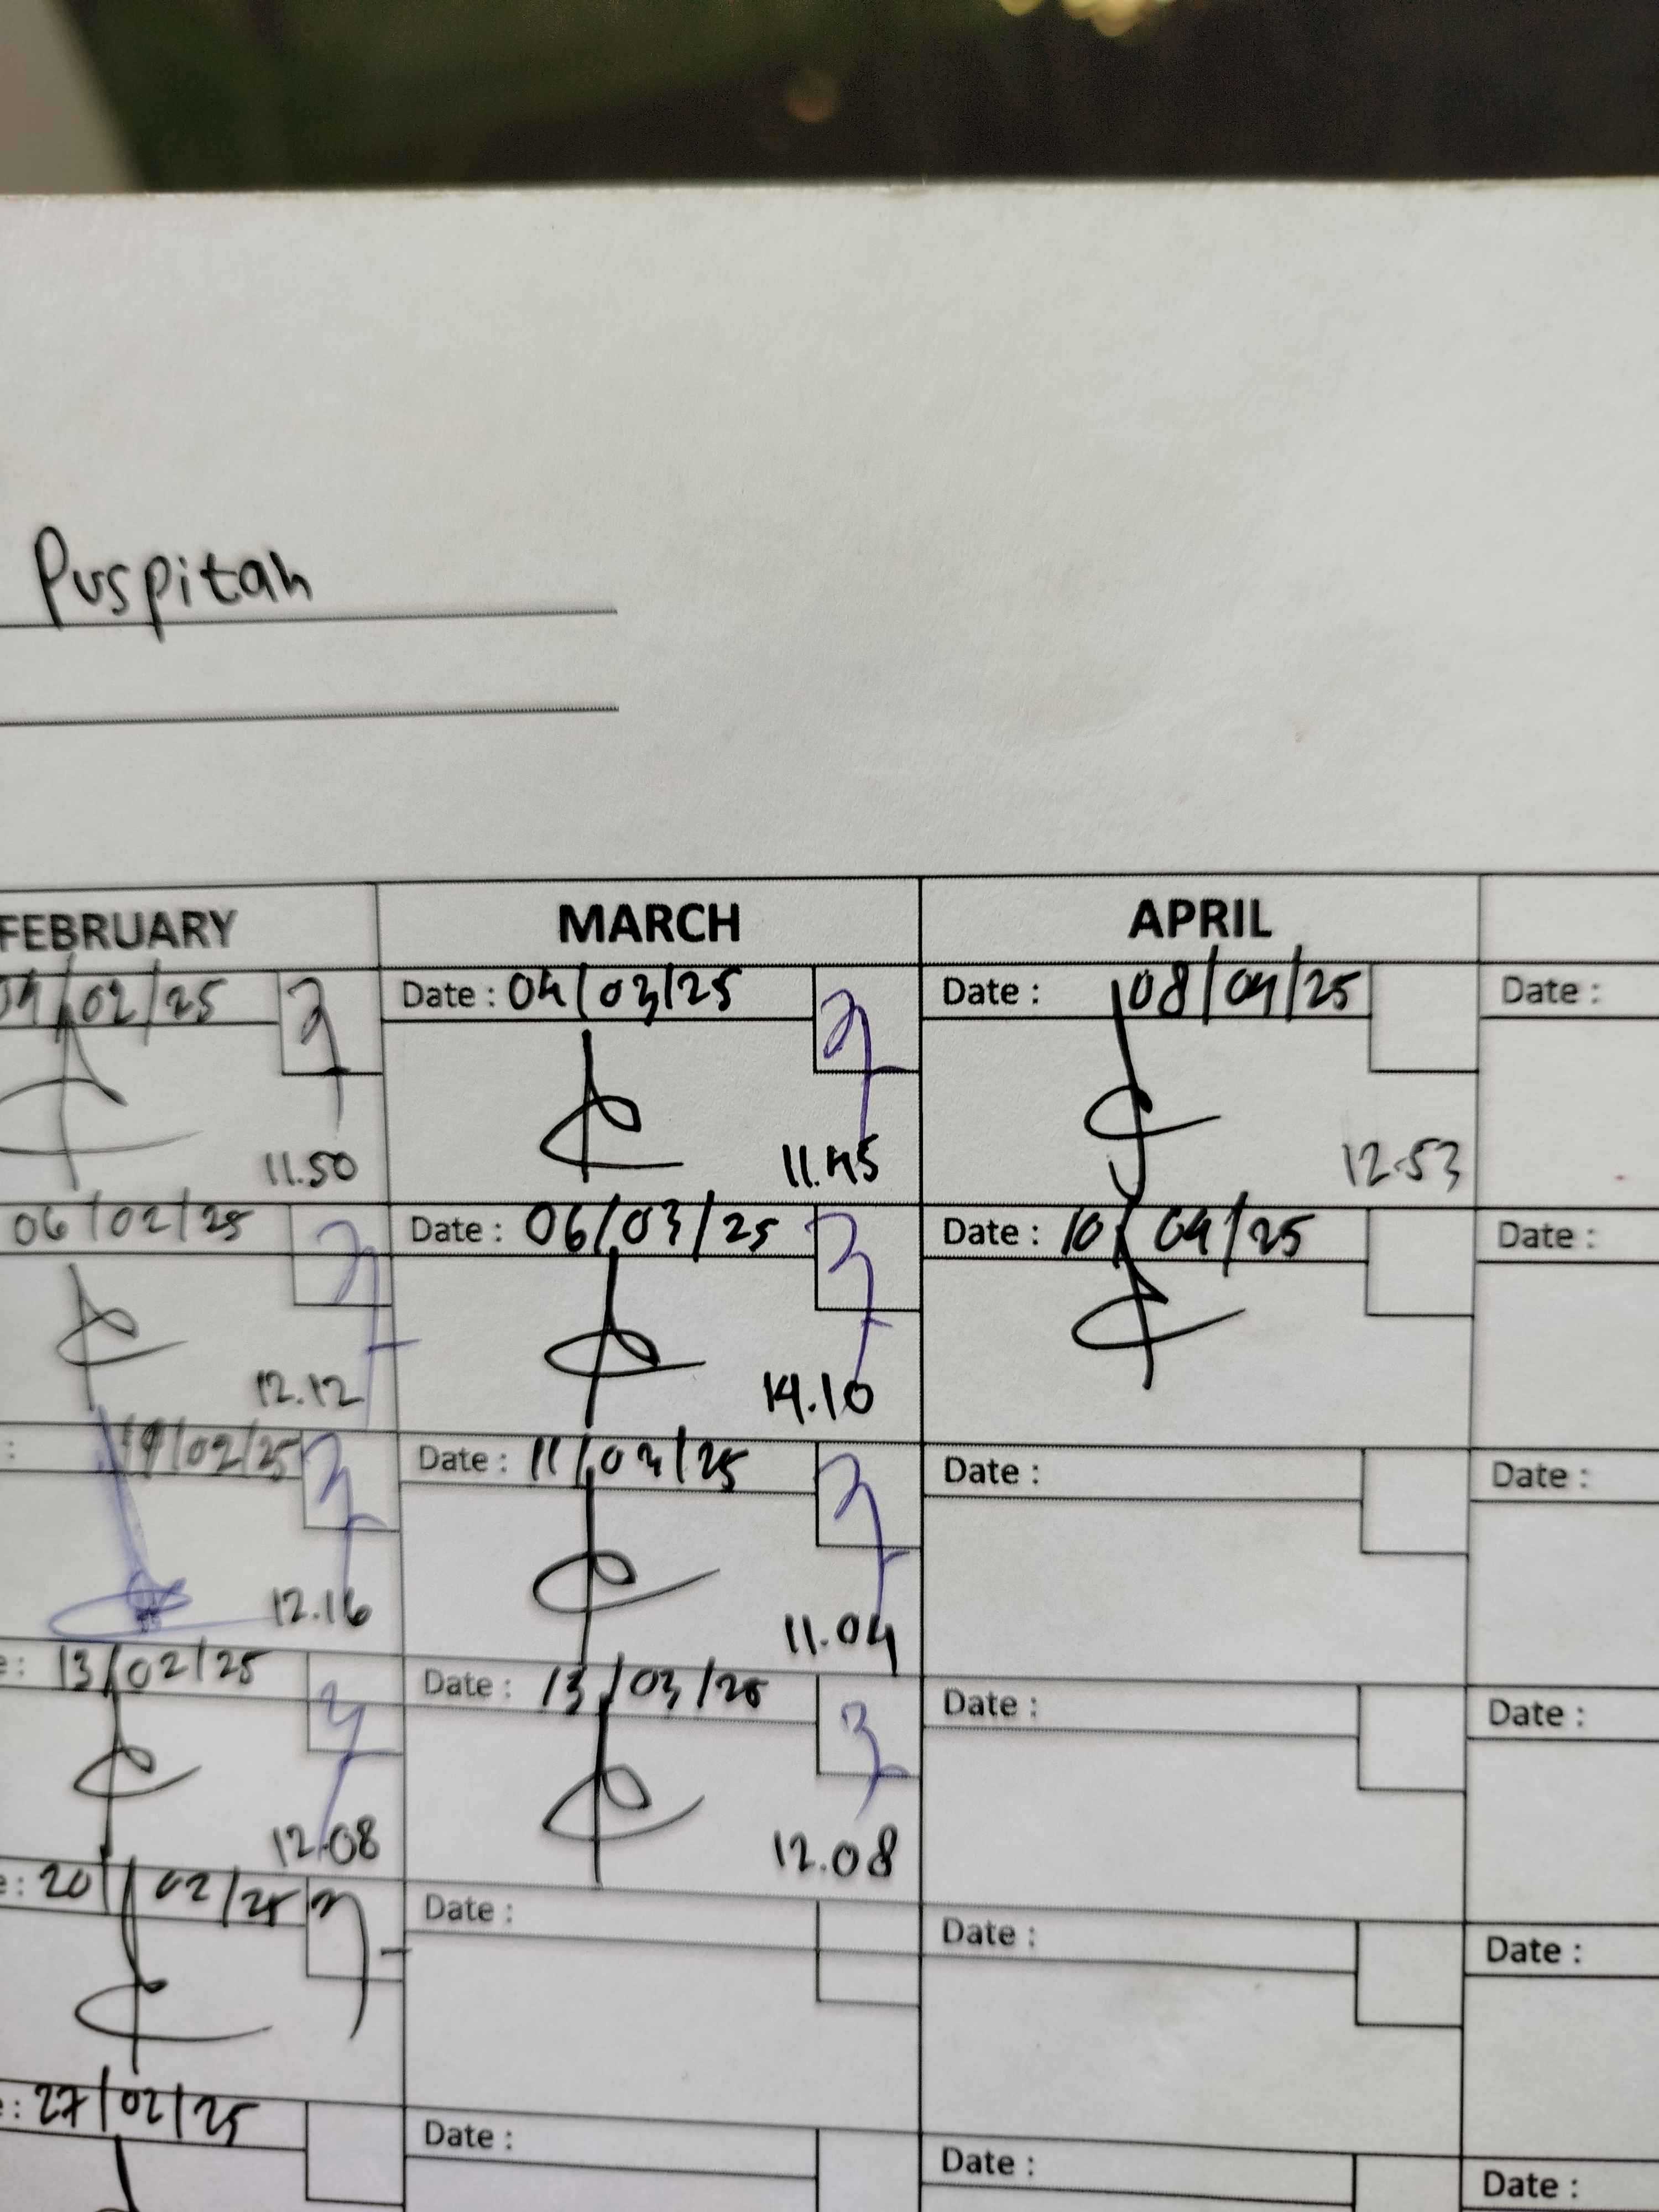 Puspitah
FEBRUARY MARCH APRIL
04/02/25 Date : 04/03/25 Date : 08/04/25 Date :
11.50 11.45 12.53
06/02/25 Date : 06/03/25 Date : 10/04/25 Date :
12.12 14.10
: 02/25 Date : 11/03/25 Date : Date :
12.16 11.04
e : 13/02/25 Date : 13/03/25 Date : Date :
12.08 12.08
e : 20/02/25 Date : Date : Date :
e : 27/02/25 Date : Date : Date :